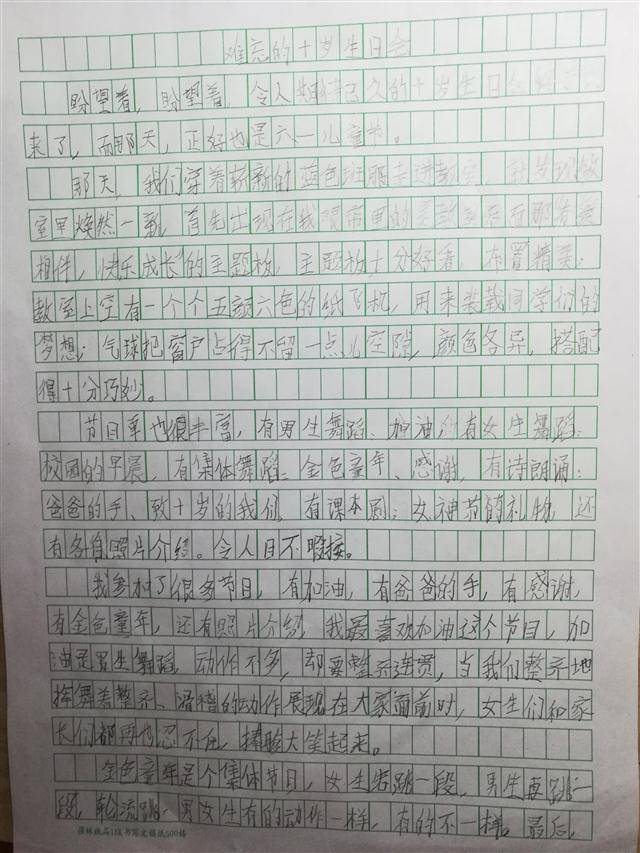 难忘的十岁生日会
盼望着，盼望着，令人期待已久的十岁生日
来了，而那天，正好也是六一儿童节。
那天，我们穿着崭新的蓝色班服走进教室，就发现教
室里焕然一新，首先出现在我眼帘里的是教室后面那
相伴，快乐成长"的主题板，主题板十分好看，布置精美；
教室上空有一个个五颜六色的纸飞机，用来装载同学们的
梦想；气球把窗户占得不留一点儿空隙，颜色各异，搭配
得十分巧妙。
节目单也很丰富，有男生舞蹈：加油，有女生舞蹈：
校园的早晨，有集体舞蹈：金色童年、感谢，有诗朗诵：
爸爸的手、致十岁的我们，有课本剧：女神节的礼物，还
有各自照片介绍。令人目不暇接。
我参加了很多节目，有加油，有爸爸的手，有感谢，
有金色童年，还有照片介绍，我最喜欢加油这个节目，加
油是男生舞蹈，动作不多，却要整齐连贯，当我们整齐地
挥舞着整齐、滑稽的动作展现在大家面前时，女生们和家
长们都再也忍不住，捧腹大笑起来。
金色童年是个集体节目，女生先跳一段，男生再跳一
段，轮流跳，男女生有的动作一样，有的不一样。最后，